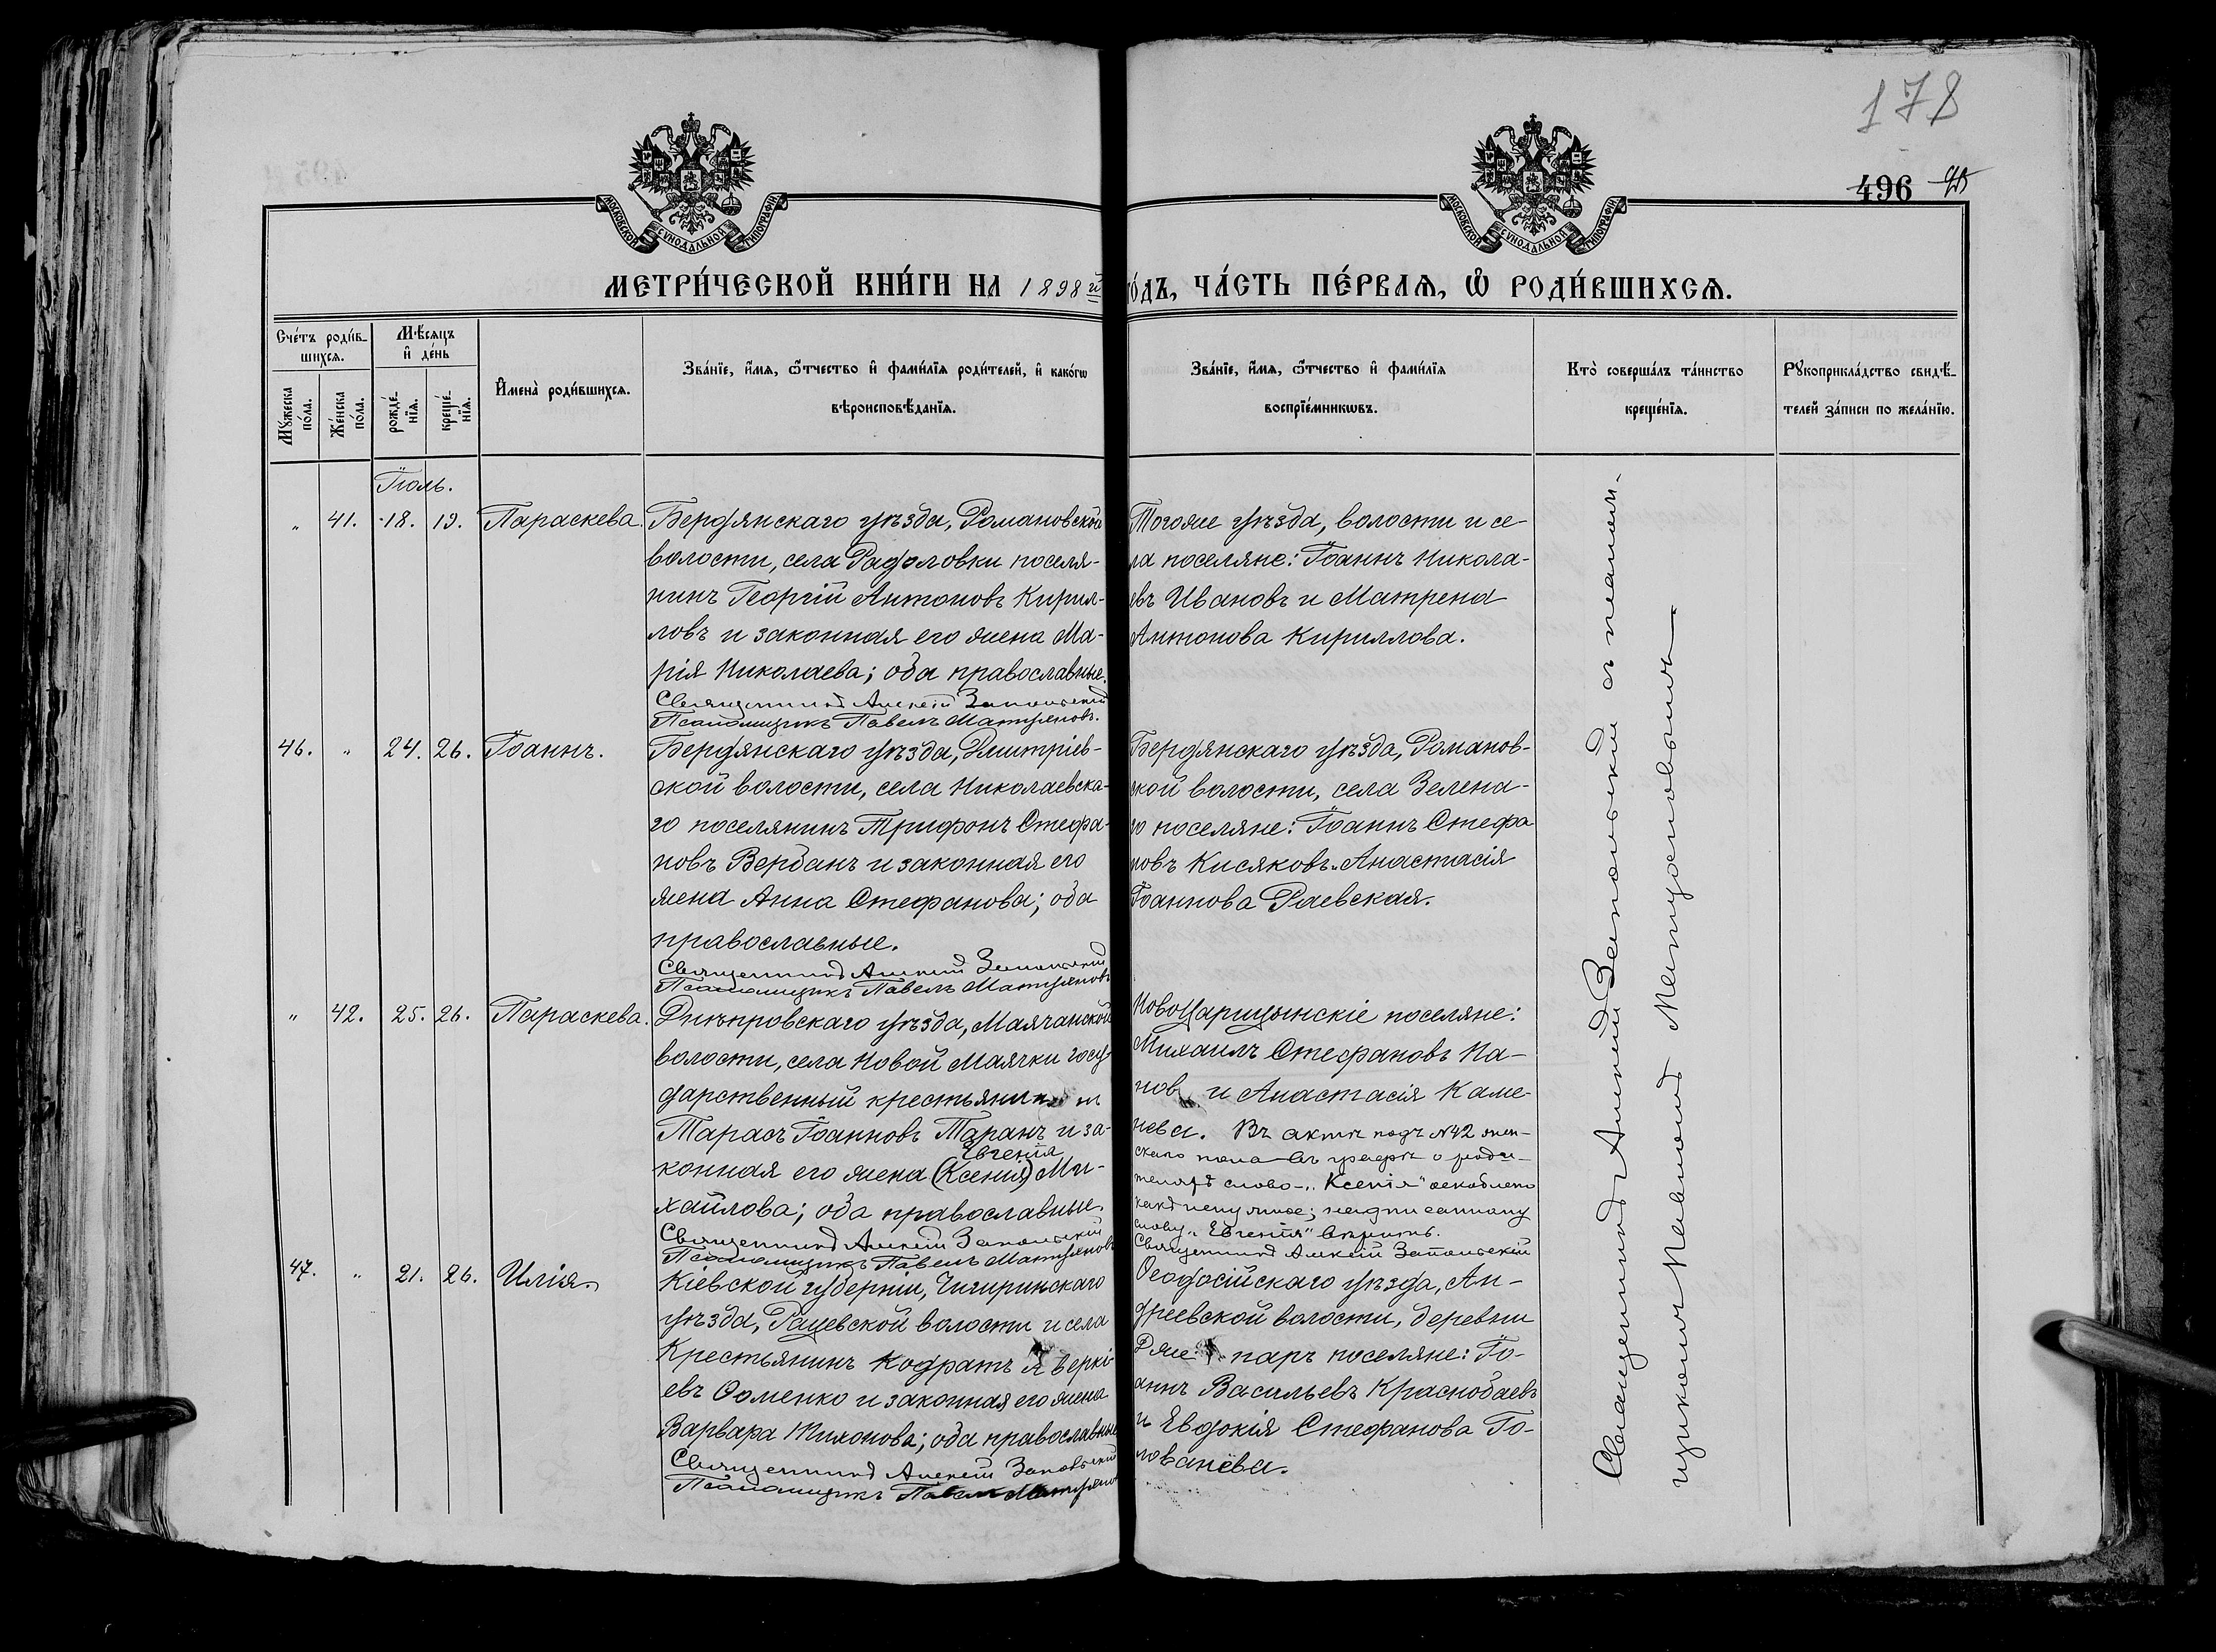 178
496
МОСКОВСКОЙ СУНОДАЛЬНОЙ ТИПОГРАФІИ
МОСКОВСКОЙ СУНОДАЛЬНОЙ ТИПОГРАФІИ
МЕТРИ́ЧЕСКОЙ КНИ́ГИ НА 1898 й
го́дъ, ЧА́СТЬ ПЕ́РВАѦ, Ѡ҆ РОДИ́ВШИХСѦ.
Сче́тъ роди́в-
шихсѧ.
Мꙋ́жеска по́ла.
Же́нска по́ла.
Мѣ́сѧцъ
и҆ де́нь
рожде́-нїѧ.
креще́-нїѧ.
И҆мена̀ роди́вшихсѧ.
Зва́нїе, и҆́мѧ, ѻ҆́тчество и҆ фами́лїѧ роди́телей, и҆ како́гѡ
вѣроисповѣ́данїѧ.
Зва́нїе, и҆́мѧ, ѻ҆́тчество и҆ фами́лїѧ
воспрїе́мникѡвъ.
Кто̀ соверша́лъ та́инство
креще́нїѧ.
Рꙋкоприкла́дство свидѣ́-
телей за́писи по жела́нїю.
Іюль.
" 41. 18. 19. Параскева. Бердянскаго уѣзда, Романовской
волости, села Радоловки поселя-
нинъ Георгій Антоновъ Кирил-
ловъ и законная его жена Ма-
рія Николаева; оба православные.
Священникъ Алексій Запольскій
Псаломщикъ Павелъ Матуяновъ.
Тогоже уѣзда, волости и се-
ла поселяне: Іоаннъ Никола-
евъ Ивановъ и Матрена
Антонова Кириллова.
46. " 24. 26. Іоаннъ. Бердянскаго уѣзда, Дмитріев-
ской волости, села Николаевска-
го поселянинъ Трифонъ Стефа-
новъ Вербанъ и законная его
жена Анна Стефанова; оба
православные.
Священникъ Алексій Запольскій
Псаломщикъ Павелъ Матуяновъ
Бердянскаго уѣзда, Романов-
ской волости, села Зелена-
го поселяне: Іоаннъ Стефа
новъ Кисяковъ и Анастасія
Іоаннова Раевская.
" 42. 25. 26. Параскева. Днѣпровскаго уѣзда, Маячанской
волости, села Новой Маячки госу-
дарственный крестьянинъ
Тарасъ Іоанновъ Таранъ и за-
Евгенія
конная его жена (Ксенія) Ми-
хайлова; оба православные.
Священникъ Алексій Запольскій
Псаломщикъ Павелъ Матуяновъ
НовоЦарицынскіе поселяне:
Михаилъ Стефановъ Па-
новъ и Анастасія Каме-
нева. Въ актѣ подъ №42 жен-
скаго пола въ графѣ о роди-
теляхъ слово „Ксенія" оскоблено
какъ ненужное; надписанному
слову „Евгенія" вѣрить.
Священникъ Алексій Запольскій
47. " 21. 26. Илія. Кіевской губерніи, Чигиринскаго
уѣзда, Рацевской волости и села
Крестьянинъ Кодратъ Аверкі-
евъ Ѳоменко и законная его жена
Варвара Тихонова; оба православные
Священникъ Алексій Запольскій
Псаломщикъ Павелъ Матуяновъ
Ѳеодосійскаго уѣзда, Ан-
дреевской волости, деревни
паръ поселяне: Іо-
аннъ Васильевъ Краснобаевъ
и Евдокія Стефанова Го-
лованёва.
Священникъ Алексій Запольскій съ псалом-
щикомъ Павломъ Матуяновымъ